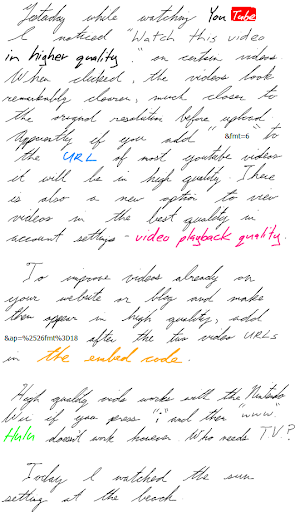 Yesterday while watching YouTube
I noticed "Watch this video
in higher quality." on certain videos
When clicked, the videos look
remarkably clearer, much closer to
the original resolution before upload
Apparently if you add "&fmt=6" to
the URL of most youtube videos
it will be in high quality. There
is also a new option to view
videos in the best quality in
account settings - video playback quality.
To improve videos already on
your website or blog and make
them appear in high quality, add
&ap=%2526fmt%3D18 after the two video URLs
in the embed code.
High quality mode works with the Nintendo
Wii if you press "i" and then "www."
Hulu doesn't work however. Who needs T.V.?
Today I watched the sun
setting at the beach